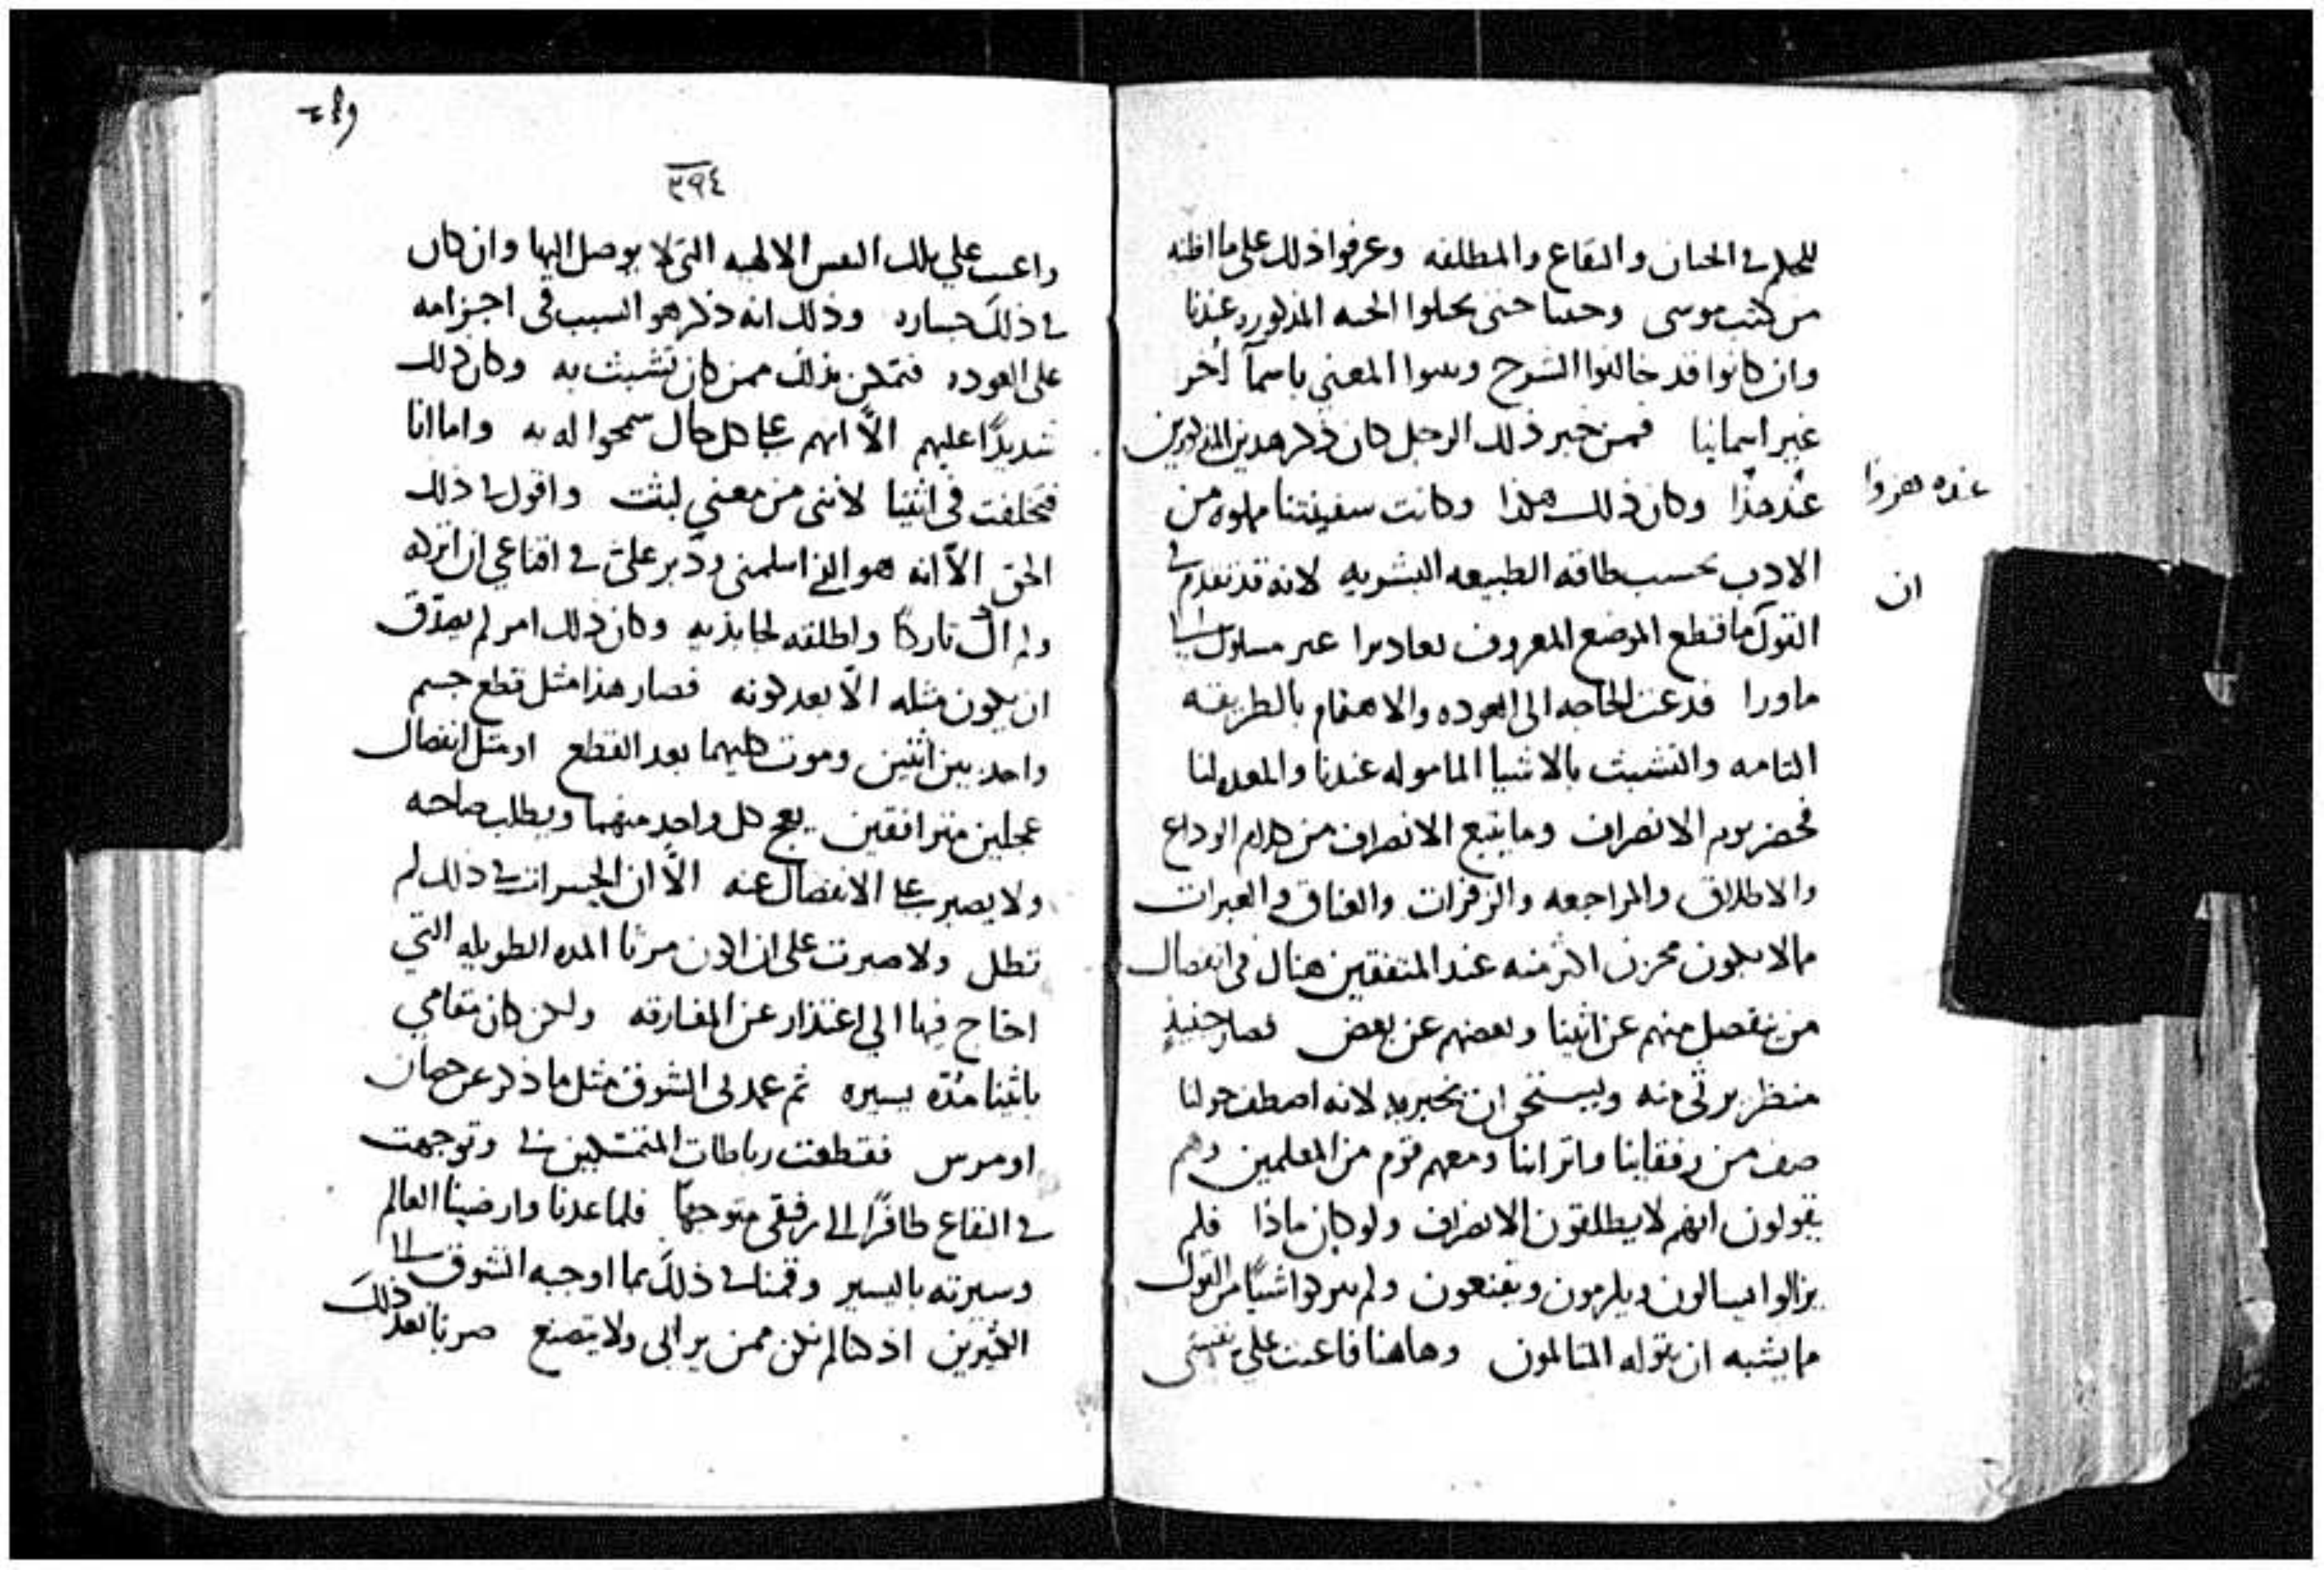 للحلم في الحنان والبقاع والمطلقه وعرفوا ذلك على ما اظنه
من كتب موسى وحتى يحلوا الحبه المذكوره عندنا
وان كانوا قد خالفوا الشرح وسوا المعنى باسما اخر
غير اسمائنا فمن خبر ذلك الرجل كان ذكر هذين المذكورين
وكان ذلك هكذا وكانت سفينتنا مملوه من
الادب بحسب طاقه الطبيعه البشريه لانه قد تقدم في
القول ما قطع الموضع المعروف غير مسلوك الى
ماورا فدعت الحاجه الى العوده والاهتمام بالطريقه
التامه والتشبث بالاشيا الماموله عندنا والمعده لنا
فحضر يوم الانصراف وما يتبع الانصراف من كلام الوداع
والاطلاق والمراجعه والزفرات والعناق والعبرات
مالا يكون محزن اكثر منه عند المتفقين هناك في انفصال
من ينفصل منهم عن اثينا وبعضهم عن بعض فصار حينيذ
منظر يرثى منه ويستحق ان يخبر به لانه اصطف حولنا
صف من رفقاينا واترابنا ومعهم قوم من المعلمين وهم
يقولون انهم لا يطلقون الانصراف ولو كان ماذا فلم
يزالوا يسالون ويلزمون ويقنعون ولم شيًا من القول
ما يشبه ان يقوله المتالمون وهاهنا فاعتب على نفسي
ان
٣٩٤
واعتب على تلك النفس الالهيه التي لا يوصل اليها وان كان
في ذلك جساره وذلك انه ذكر هو السبب في
على العوده فتمكن بذلك ممن كان تشبث به وكان ذلك
شديدًا عليهم الّا انهم على كل حال سمحوا له به واما انا
فتخلفت في اثينا لانني من معنى لبثت واقول في ذلك
الحق الّا انه هو الذي اسلمني ودبر عليّ في اقناعي ان اتركه
ولم اك تاركًا واطلقه لجابذيه وكان ذلك امر لم يصدّق
ان يكون مثله الّا بعد كونه فصار هذا مثل قطع جسم
واحد بين اثنين وموت كليهما بعد القطع او مثل انفصال
عجلين مترافقين يعج كل واحد منهما ويطلب صاحبه
ولا يصبر على الانفصال عنه الّا ان الخسرات في ذلك لم
تطل ولا صبرت على ان اكون مرتا المده الطويله التي
احتاج فيها الى اعتذار عن المفارقه ولكن كان مقامي
باثينا مدّه يسيره ثم عمد لى الشوق مثل ما ذكر عن حصان
اومرس فقطعت رباطات المتمسّكين بي وتوجهت
في البقاع طافرًا الى رفيقي متوجهًا فلما عدنا وارضينا العالم
وسيرته باليسير وقمنا في ذلك بما اوجبه الشوق الى
الكثيرين اذ كنا لم نكن ممن يرايى ولا يتصنع صرنا بعد ذلك